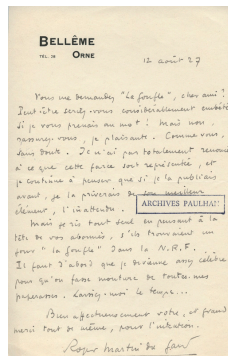 BELLÊME
TÉL. 28 ORNE
12 août 27
Vous me demandez "La Gonfle", cher ami?
Peut-être seriez-vous considérablement embêté
si je vous prenais au mot! Mais non,
rassurez-vous, je plaisante. Comme vous,
sans doute. Je n'ai pas totalement renoncé
à ce que cette farce soit représentée, et
je continue à penser que si je la publiais
avant, je la priverais de son meilleur
élément, l'inattendu.
ARCHIVES PAULHAN
Mais je ris tout seul en pensant à la
tête de vos abonnés, s'ils trouvaient un
jour "la Gonfle" dans la N.R.F. ..
Il faut d'abord que je devienne assez célèbre
pour qu'on fasse monture de toutes mes
paperasses. Laissez-moi le temps...
Bien affectueusement votre, et grand
merci tout de même, pour l'intention.
Roger Martin du Gard